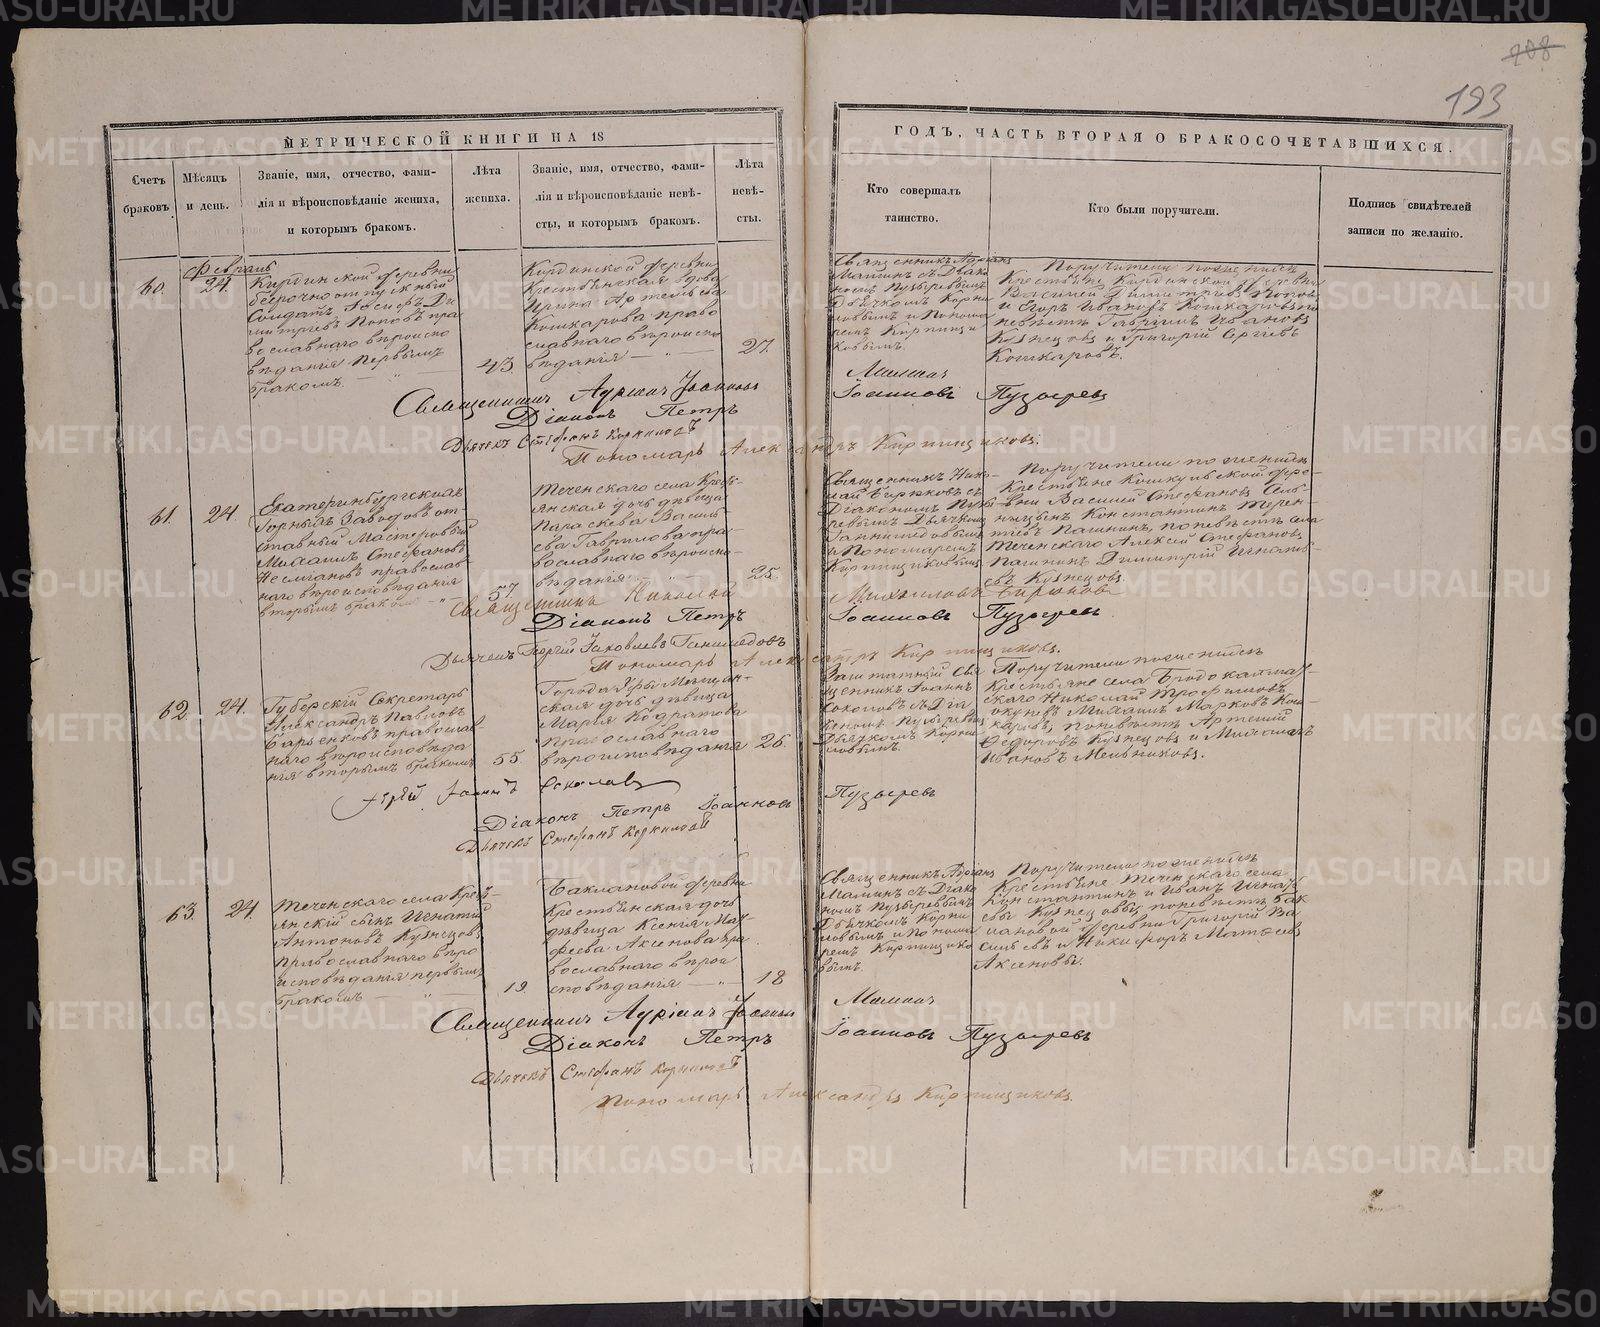 208
193
МЕТРИЧЕСКОЙ КНИГИ НА 18
ГОДЪ, ЧАСТЬ ВТОРАЯ О БРАКОСОЧЕТАВШИХСЯ.
Счетъ
браковъ
Мѣсяцъ
и день.
Званіе, имя, отчество, фами-
лія и вѣроисповѣданіе жениха,
и которымъ бракомъ.
Лѣта
жениха.
Званіе, имя, отчество, фами-
лія и вѣроисповѣданіе невѣ-
сты, и которымъ бракомъ.
Лѣта
невѣ-
сты.
Кто совершалъ
таинство.
Кто были поручители.
Подпись свидѣтелей
записи по желанію.
Февраль
60.
24.
Кирдинской деревни
безсрочноотпускный
Солдатъ Іосифъ Ди
митріевъ Поповъ пра
вославнаго вѣроиспо
вѣданія первымъ
бракомъ.
43.
Кирдинской деревни
Крестьянская вдова
Ирина Артемьева
Кошкарова право
славнаго вѣроиспо
вѣданія
27.
Священникъ Адріанъ
Маминъ съ Діако
номъ Пузыревымъ
Дьячкомъ Корни
ловымъ и Понома
ремъ Кирпищи
ковымъ.
Поручители по женихѣ
Крестьяне Кирдинской деревни
Василій Димитріевъ Поповъ
и Егоръ Ивановъ Кошкаровъ по
невѣстѣ Гавріилъ Ивановъ
Кузнецовъ и Григорій Сергіевъ
Кошкаровъ.
Священникъ Адріанъ Іоанновъ Маминъ
Діаконъ Петръ Іоанновъ Пузыревъ
Дьячекъ Стефанъ Корниловъ
Пономарь Александръ Кирпищиковъ.
61.
24.
Екатеринбургскихъ
Горныхъ Заводовъ от
ставный Мастеровый
Михаилъ Стефановъ
православ
наго вѣроисповѣданія
вторымъ бракомъ
57.
Теченскаго села Кресть-
янская дочь дѣвица
Параскева Василь-
ева Гаврилова пра-
вославнаго вѣроиспо-
вѣданія
25.
Священникъ Нико-
лай Бирюковъ съ
Діакономъ Пузы
ревымъ Дьячкомъ
Ганимедовымъ
и Пономаремъ
Кирпищиковымъ
Поручители по женихѣ
Крестьяне Кошкульской дере-
вни Василій Стефановъ
Константинъ Терен-
тіевъ Пашнинъ, по невѣстѣ села
Теченскаго Алексей Стефановъ
Пашнинъ Димитрій Игнать-
евъ Кузнецовъ.
Священникъ Николай Михайловъ Бирюковъ
Діаконъ Петръ Іоанновъ Пузыревъ
Дьячекъ Георгій Іаковлевъ Ганимедовъ
Пономарь Александръ Кирпищиковъ.
62.
24.
Губерскій Секретарь
Александръ Павловъ
православ
наго вѣроисповѣда
нія вторымъ бракомъ
55.
Города Уфы Мещан-
ская дочь дѣвица
Марія Кодратова
православнаго
вѣроисповѣданія
26.
Заштатный Свя
щенникъ Іоаннъ
Соколовъ съ Діа
кономъ Пузыревымъ
Дьячкомъ Корни
ловымъ.
Поручители по женихѣ
Крестьяне села Бродокалмак
скаго Николай Трофимовъ
Михаилъ Марковъ Кош
каровъ, по невѣстѣ Артемій
Федоровъ Кузнецовъ и Михаилъ
Ивановъ Мельниковъ.
Іерей Іоаннъ Соколовъ
Діаконъ Петръ Іоанновъ Пузыревъ
Дьячекъ Стефанъ Корниловъ
63.
24.
Теченскаго села Кресть
янскій сынъ Игнатій
Антоновъ Кузнецовъ
православнаго вѣро
исповѣданія первымъ
бракомъ
19.
Баклановой деревни
Крестьянская дочь
дѣвица Ксенія Мат
феева Аксенова пра
вославнаго вѣрои
сповѣданія
18
Священникъ Адріанъ
Маминъ съ Діако
номъ Пузыревымъ
Дьячкомъ Корни
ловымъ и Понома
ремъ Кирпищико
вымъ.
Поручители по женихѣ
Крестьяне Теченскаго села
Константинъ и Иванъ Игнать
евы Кузнецовы, по невѣстѣ Бак
лановой деревни Григорій Ва
сильевъ и Никифоръ Матѳеевъ
Аксеновы.
Священникъ Адріанъ Іоанновъ Маминъ
Діаконъ Петръ Іоанновъ Пузыревъ
Дьячекъ Стефанъ Корниловъ
Пономарь Александръ Кирпищиковъ.
METRIKI.GASO-URAL.RU